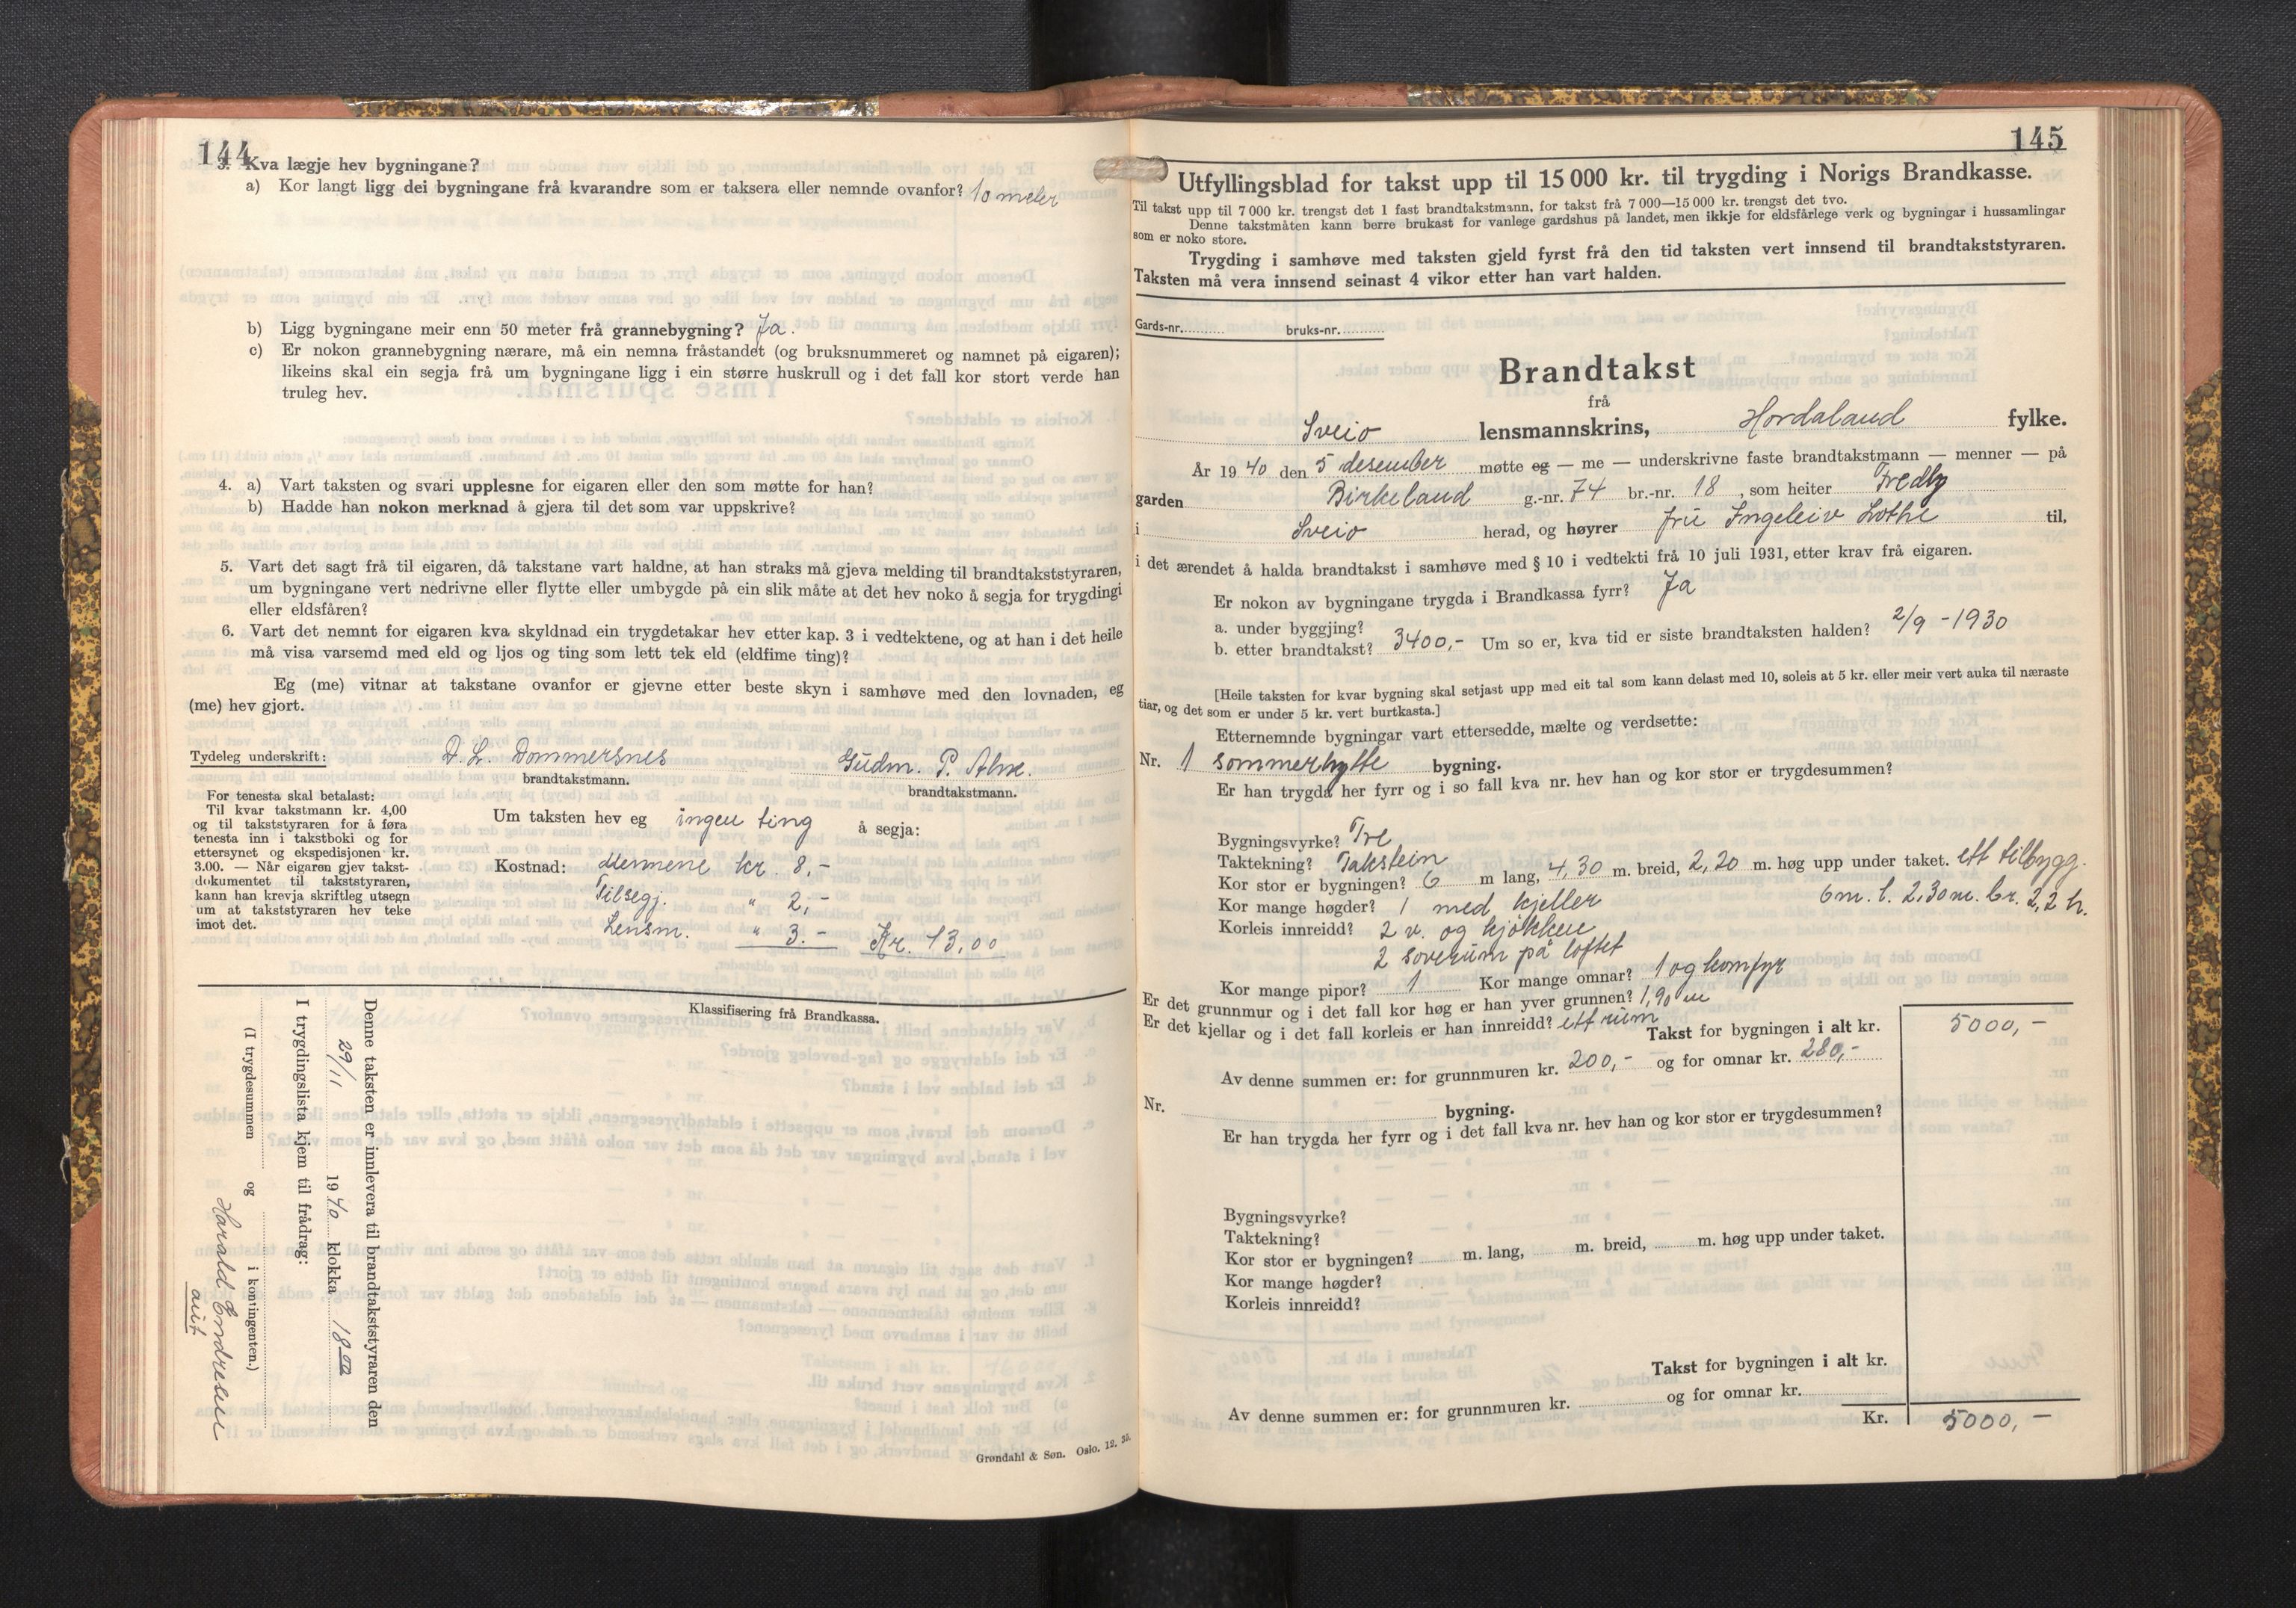 144
3. Kva lægje hev bygningane?
a) Kor langt ligg dei bygningane frå kvarandre som er taksera eller nemnde ovanfor? 10 meter
b) Ligg bygningane meir enn 50 meter frå grannebygning? Ja.
c) Er nokon grannebygning nærare, må ein nemna fråstandet (og bruksnummeret og namnet på eigaren);
likeins skal ein segja frå um bygningane ligg i ein større huskrull og i det fall kor stort verde han
truleg hev.
4. a) Vart taksten og svari upplesne for eigaren eller den som møtte for han?
b) Hadde han nokon merknad å gjera til det som var uppskrive?
5. Vart det sagt frå til eigaren, då takstane vart haldne, at han straks må gjeva melding til brandtakststyraren,
um bygningane vert nedrivne eller flytte eller umbygde på ein slik måte at det hev noko å segja for trygdingi
eller eldsfåren?
6. Vart det nemnt for eigaren kva skyldnad ein trygdetakar hev etter kap. 3 i vedtektene, og at han i det heile
må visa varsemd med eld og ljos og ting som lett tek eld (eldfime ting)?
Eg (me) vitnar at takstane ovanfor er gjevne etter beste skyn i samhøve med den lovnaden, eg
(me) hev gjort.
Tydeleg underskrift: D. L. Dommersnes Gudm. P. Alne.
brandtakstmann. brandtakstmann.
For tenesta skal betalast:
Til kvar takstmann kr. 4,00
og til takststyraren for å føra
tenesta inn i takstboki og for
ettersynet og ekspedisjonen kr.
3.00. — Når eigaren gjev takst-
dokumentet til takststyraren,
kann han krevja skriftleg utsegn
um at takststyraren hev teke
imot det.
Um taksten hev eg ingen ting å segja:
Kostnad: Mennene kr. 8,-
Tilsegj. " 2,-
Lensm. " 3.- Kr. 13,00
Klassifisering frå Brandkassa.
Denne taksten er innlevera til brandtakststyraren den
29/11 1940 klokka 18 00
I trygdingslista kjem til frådrag:
(I trygdesummen og i kontingenten.)
Harald Endresen
ass
Grøndahl & Søn. Oslo. 12. 38.
145
Utfyllingsblad for takst upp til 15 000 kr. til trygding i Norigs Brandkasse.
Til takst upp til 7 000 kr. trengst det 1 fast brandtakstmann, for takst frå 7 000—15 000 kr. trengst det tvo.
Denne takstmåten kann berre brukast for vanlege gardshus på landet, men ikkje for eldsfårlege verk og bygningar i hussamlingar
som er noko store.
Trygding i samhøve med taksten gjeld fyrst frå den tid taksten vert innsend til brandtakststyraren.
Taksten må vera innsend seinast 4 vikor etter han vart halden.
Gards-nr. bruks-nr.
Brandtakst
frå
Sveio lensmannskrins, Hordaland fylke.
År 1940 den 5 desember møtte eg — me — underskrivne faste brandtakstmann — menner — på
garden Birkeland g.-nr. 74 br.-nr. 18, som heiter Fredly
i Sveio herad, og høyrer fru Ingeleiv Lothe til,
i det ærendet å halda brandtakst i samhøve med § 10 i vedtekti frå 10 juli 1931, etter krav frå eigaren.
Er nokon av bygningane trygda i Brandkassa fyrr? Ja
a. under byggjing?
b. etter brandtakst? 3400,- Um so er, kva tid er siste brandtaksten halden? 2/9 - 1930
[Heile taksten for kvar bygning skal setjast upp med eit tal som kann delast med 10, soleis at 5 kr. eller meir vert auka til næraste
tiar, og det som er under 5 kr. vert burtkasta.]
Etternemnde bygningar vart ettersedde, mælte og verdsette:
Nr. 1 sommerhytte bygning.
Er han trygda her fyrr og i so fall kva nr. hev han og kor stor er trygdesummen?
Bygningsvyrke? Tre
Taktekning? Takstein
Kor stor er bygningen? 6 m lang, 4,30 m. breid, 2,20 m. høg upp under taket. ett tilbygg.
6 m. l. 2,30 m. br. 2,2 h.
Kor mange høgder? 1 med kjeller
Korleis innreidd? 2 v. og kjøkken
2 soverum på loftet
Kor mange pipor? 1 Kor mange omnar? 1 og komfyr
Er det grunnmur og i det fall kor høg er han yver grunnen? 1,90 m
Er det kjellar og i det fall korleis er han innreidd? ett rum
Takst for bygningen i alt kr. 5000,-
Av denne summen er: for grunnmuren kr. 200,- og for omnar kr. 280,-
Nr. bygning.
Er han trygda her fyrr og i det fall kva nr. hev han og kor stor er trygdesummen?
Bygningsvyrke?
Taktekning?
Kor stor er bygningen? m. lang, m. breid, m. høg upp under taket.
Kor mange høgder?
Korleis innreidd?
Takst for bygningen i alt kr.
Av denne summen er: for grunnmuren kr. og for omnar kr.
Kr. 5000,-